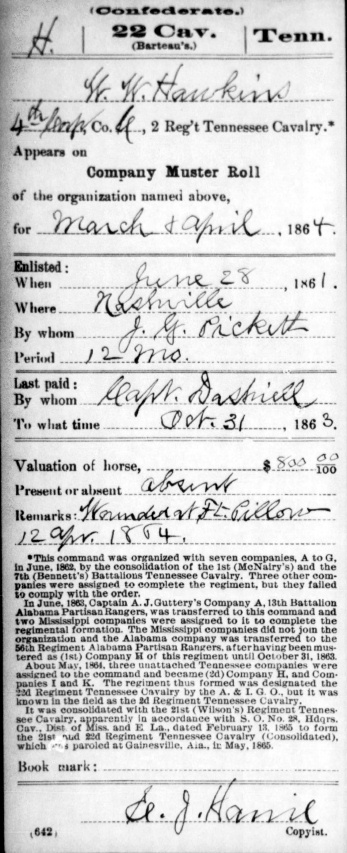 (Confederate.)
H. 22 Cav. Tenn.
(Barteau's.)
W. W. Hawkins
4th Corp, Co. G, 2 Reg't Tennessee Cavalry.*
Appears on
Company Muster Roll
of the organization named above,
for March & April, 1864.
Enlisted:
When June 28, 1861.
Where Nashville
By whom J. G. Pickett
Period 12 Mo.
Last paid:
By whom Capt.
To what time Oct. 31, 1863.
Valuation of horse, $800 00/100
Present or absent absent
Remarks: Wounded at Ft. Pillow
12 Apr. 1864.
*This command was organized with seven companies, A to G,
in June, 1862, by the consolidation of the 1st (McNairy's) and the
7th (Bennett's) Battalions Tennessee Cavalry. Three other com-
panies were assigned to complete the regiment, but they failed
to comply with the order.
In June, 1863, Captain A. J. Guttery's Company A, 13th Battalion
Alabama Partisan Rangers, was transferred to this command and
two Mississippi companies were assigned to it to complete the
regimental formation. The Mississippi companies did not join the
organization and the Alabama company was transferred to the
56th Regiment Alabama Partisan Rangers, after having been mus-
tered as (1st) Company H of this regiment until October 31, 1863.
About May, 1864, three unattached Tennessee companies were
assigned to the command and became (2d) Company H, and Com-
panies I and K. The regiment thus formed was designated the
22d Regiment Tennessee Cavalry by the A. & I. G. O., but it was
known in the field as the 2d Regiment Tennessee Cavalry.
It was consolidated with the 21st (Wilson's) Regiment Tennes-
see Cavalry, apparently in accordance with S. O. No. 28, Hdqrs.
Cav., Dist. of Miss. and E. La., dated February 13, 1865 to form
the 21st and 22d Regiment Tennessee Cavalry (Consolidated),
which was paroled at Gainesville, Ala., in May, 1865.
Book mark:
J.
(642) Copyist.